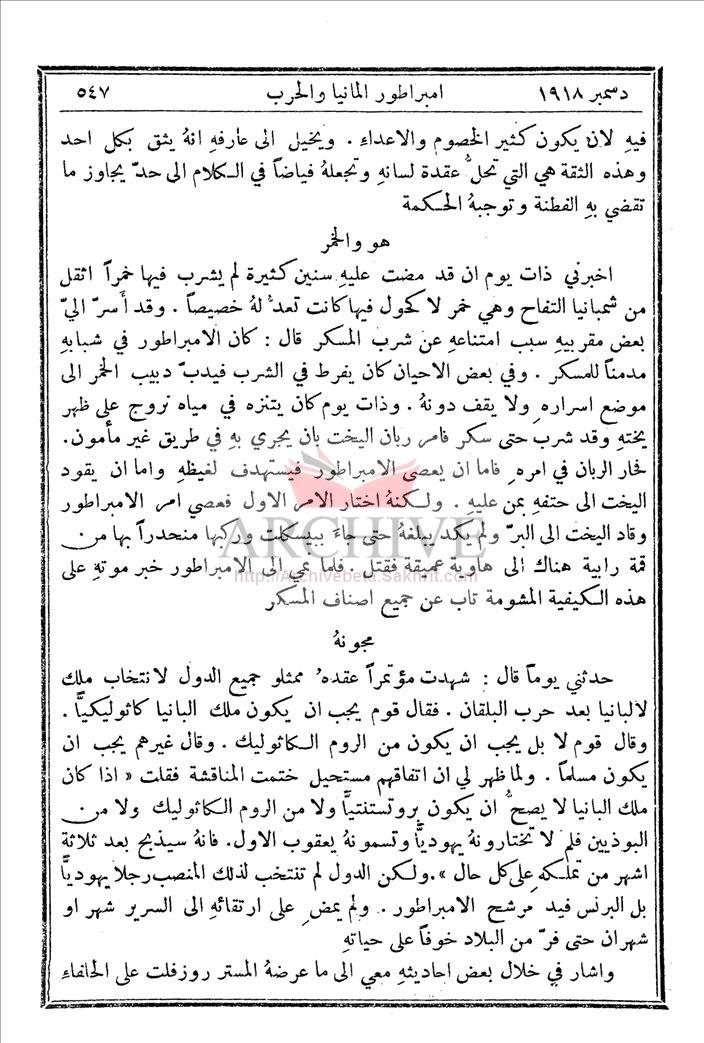 دسمبر ١٩١٨ امبراطور المانيا والحرب ٥٤٧
فيهِ لان يكون كثير الخصوم والاعداءِ . ويخيل الى عارفهِ انهُ يثق بكل احد
وهذه الثقة هي التي تحلُّ عقدة لسانهِ وتجعلهُ فياضاً في الكلام الى حدّ يجاوز ما
تقضي بهِ الفطنة وتوجبهُ الحكمة
هو والخمر
اخبرني ذات يوم ان قد مضت عليهِ سنين كثيرة لم يشرب فيها خمراً اثقل
من شمبانيا التفاح وهي خمر لا كحول فيها كانت تعدُّ لهُ خصيصاً . وقد أَسرّ اليّ
بعض مقربيهِ سبب امتناعهِ عن شرب المسكر قال : كان الامبراطور في شبابهِ
مدمناً للمسكر . وفي بعض الاحيان كان يفرط في الشرب فيدبّ دبيب الخمر الى
موضع اسراره ولا يقف دونهُ . وذات يوم كان يتنزه في مياه نروج على ظهر
يختهِ وقد شرب حتى سكر فامر ربان اليخت بان يجري بهِ في طريق غير مأمون.
فحار الربان في امره فاما ان يعصى الامبراطور فيستهدف لغيظهِ واما ان يقود
اليخت الى حتفهِ بمن عليهِ . ولكنهُ اختار الامر الاول فعصي امر الامبراطور
وقاد اليخت الى البرّ ولم يكد يبلغهُ حتى جاءَ ببيسكلت وركبها منحدراً بها من
قمة رابية هناك الى هاوية عميقة فقتل . فلما نمي الى الامبراطور خبر موتهِ على
هذه الكيفية المشومة تاب عن جميع اصناف المسكر
مجونهُ
حدثني يوماً قال : شهدت مؤتمراً عقدهُ ممثلو جميع الدول لانتخاب ملك
لالبانيا بعد حرب البلقان . فقال قوم يجب ان يكون ملك البانيا كاثوليكيًّا .
وقال قوم لا بل يجب ان يكون من الروم الكاثوليك . وقال غيرهم يجب ان
يكون مسلماً . ولما ظهر لي ان اتفاقهم مستحيل ختمت المناقشة فقلت « اذا كان
ملك البانيا لا يصحُّ ان يكون بروتستنتيًّا ولا من الروم الكاثوليك ولا من
البوذيين فلم لا تختارونهُ يهوديًّا وتسمونهُ يعقوب الاول. فانهُ سيذبح بعد ثلاثة
اشهر من تملكهِ على كل حال ».ولكن الدول لم تنتخب لذلك المنصب رجلاً يهوديًّا
بل البرنس فيد مرشح الامبراطور . ولم يمض على ارتقائهِ الى السرير شهر او
شهران حتى فرّ من البلاد خوفاً على حياتهِ
واشار في خلال بعض احاديثهِ معي الى ما عرضهُ المستر روزفلت على الحلفاءِ
ARCHIVE
http://Archivebeta.Sakhrit.com